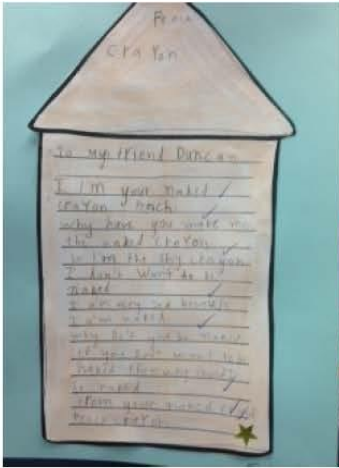 From
crayon
To my friend Duncan
I im your naked
crayon Peach
why have you make me
the naked crayon
so I'm the shy crayon
I don't want to be
naked
I am very sad because
I am naked
why
if you don't want to be
naked then why should
be naked
from your naked